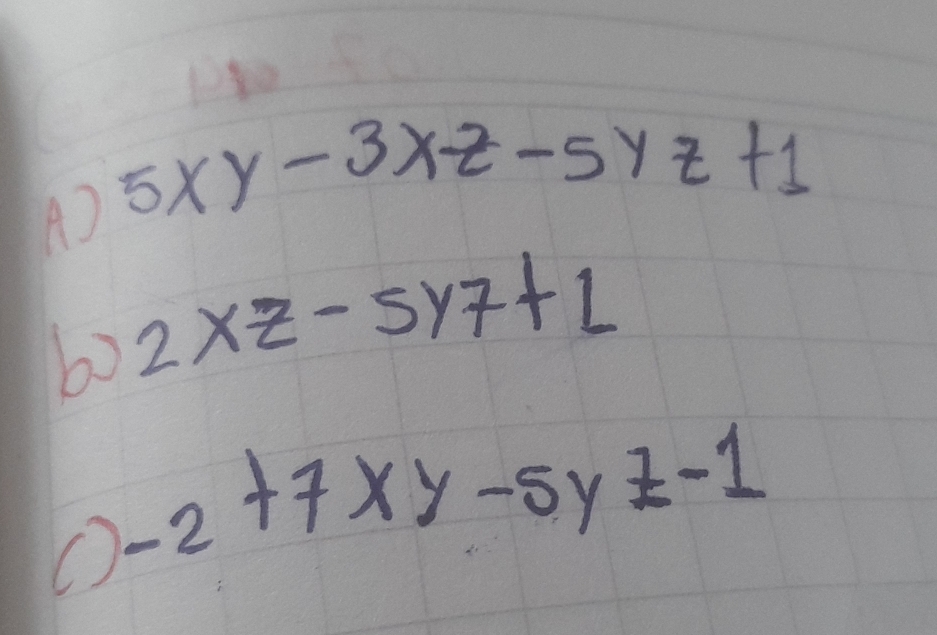 A) 5xy - 3xz - 5yz + 1
b) 2xz - 5yz + 1
c) -2 + 7xy - 5yz - 1